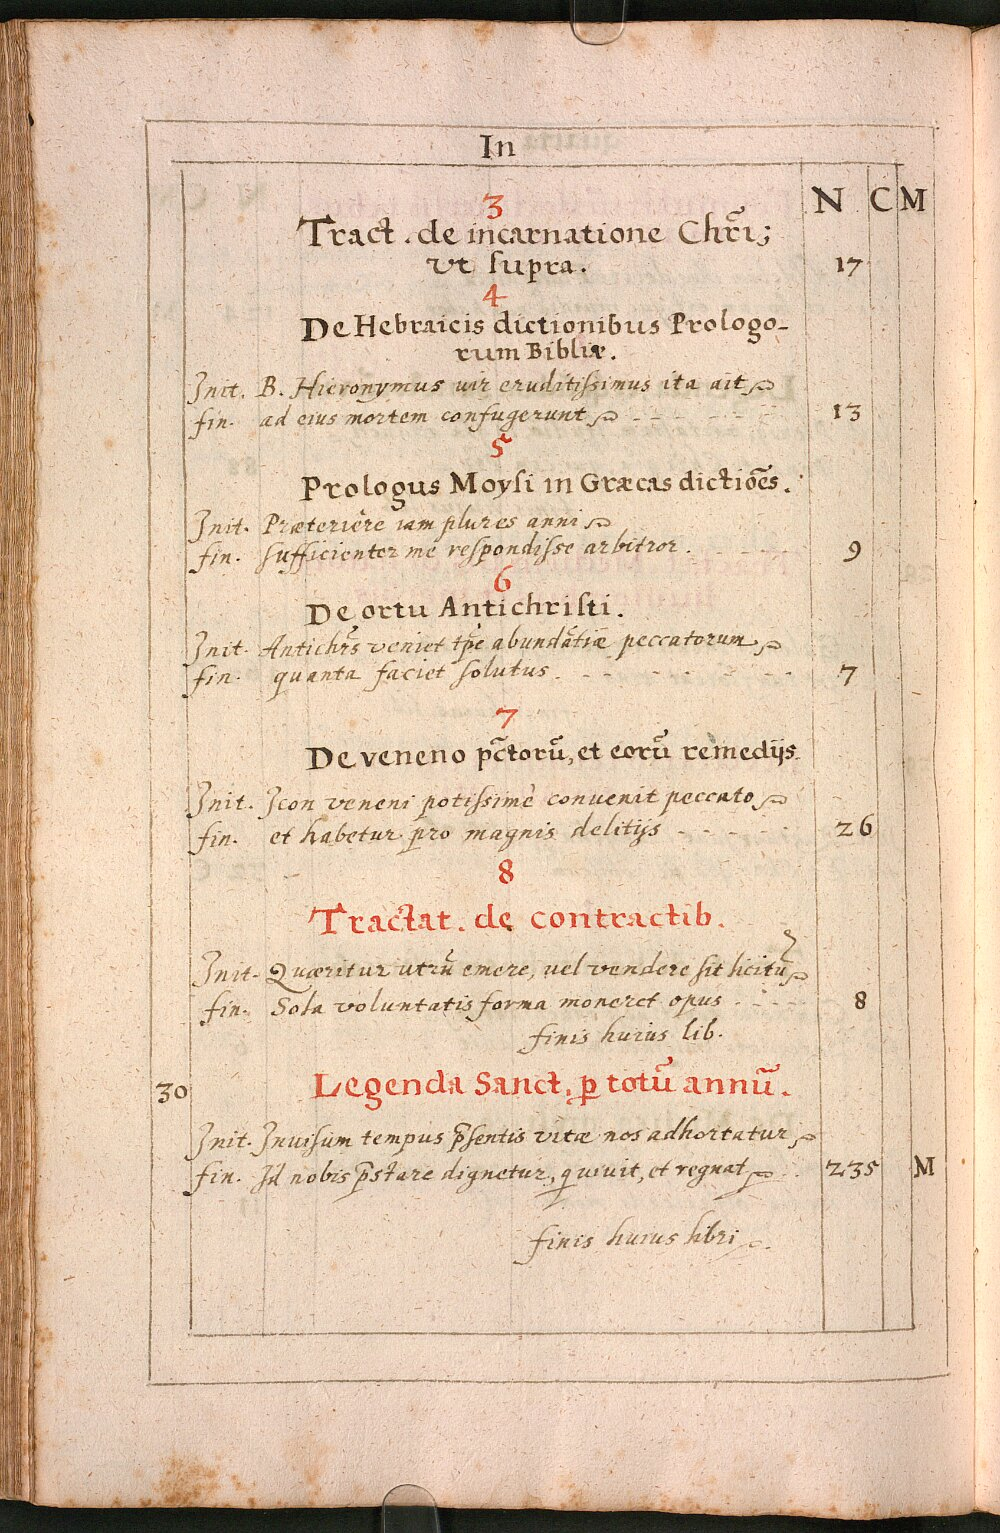 In
N C M
3
Tract. de incarnatione Chr̃i;
vt ſupra. 17
4
De Hebraicis dictionibus Prologo-
rum Bibliæ.
Init. B. Hieronymus uir eruditiſsimus ita ait
fin. ad eius mortem confugerunt 13
5
Prologus Moyſi in Græcas dictiōes.
Init. Præteriêre iam plures anni
fin. ſufficienter me reſpondiſse arbitror. 9
6
De ortu Antichriſti.
Init. Antichr̃s veniet tp̃e abundãtiæ peccatorum
fin. quanta faciet ſolutus. 7
7
De veneno pc̃torũ, et eorũ remedijs.
Init. Icon veneni potiſsimè convenit peccato
fin. et habetur pro magnis delitijs 26
8
Tractat. de contractib.
Init. Quæritur utrũ emere, uel vendere ſit licitũ
fin. Sola voluntatis forma moneret opus 8
finis huius lib.
30 Legenda Sanct. ꝑ totũ annũ.
Init. Inuiſum tempus p̃ſentis vitæ nos adhortatur
fin. Id nobis p̃ſtare dignetur, q uiuit, et regnat 235 M
finis huius libri